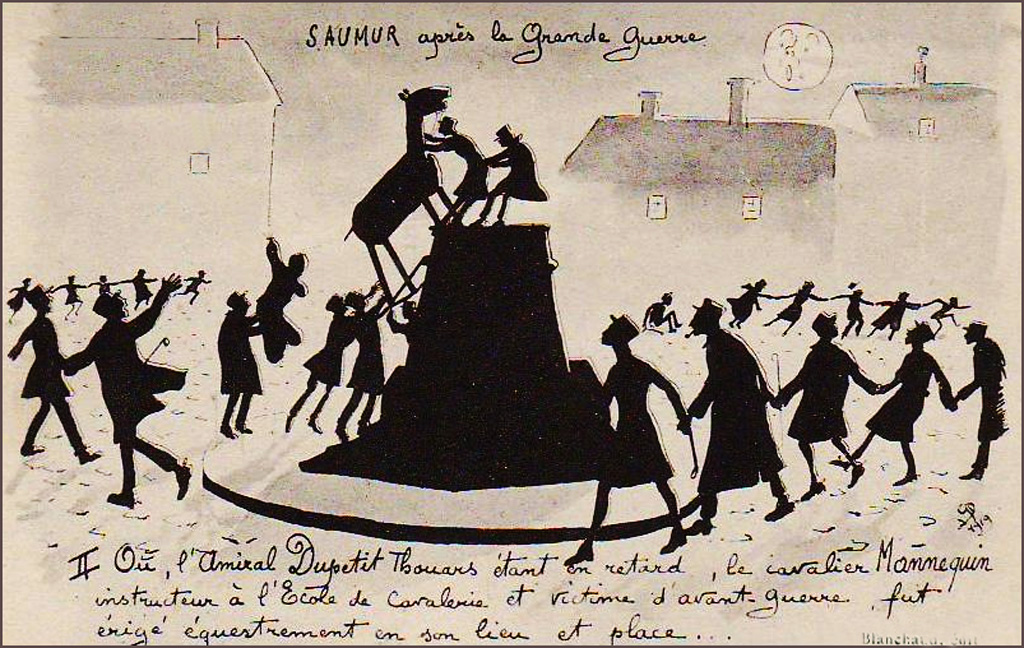 SAUMUR après la Grande Guerre
1919
II Où, l'Amiral Dupetit Thouars étant en retard, le cavalier Mannequin
instructeur à l'École de Cavalerie et victime d'avant-guerre, fut
érigé équestrement en son lieu et place...
Blanchaud, édit